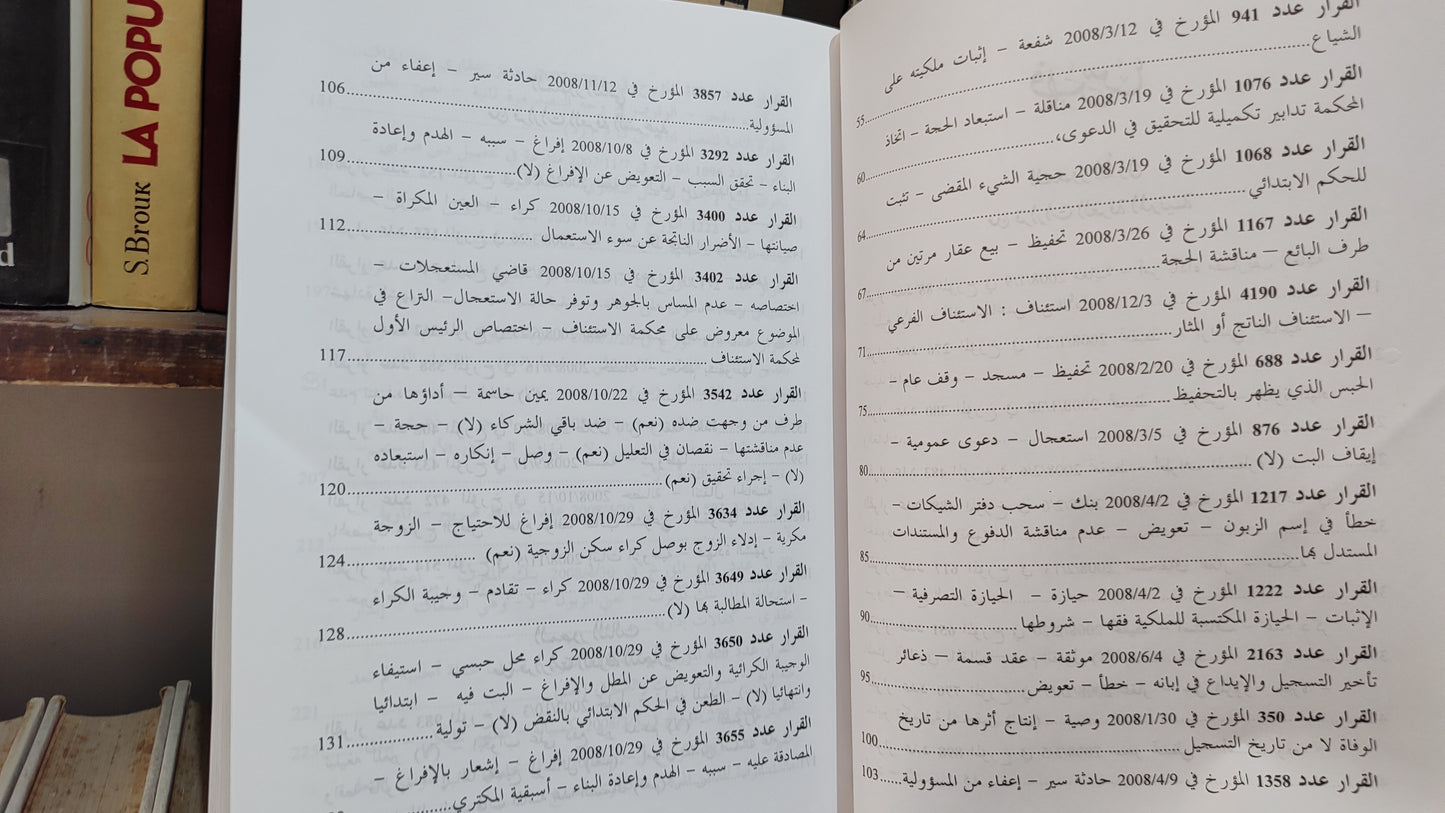 القرار عدد 941 المؤرخ في 2008/3/12 شفعة – إثبات ملكيته على
الشياع....................55
القرار عدد 1076 المؤرخ في 2008/3/19 مناقلة – استبعاد الحجة – اتخاذ
المحكمة تدابير تكميلية للتحقيق في الدعوى،....................60
القرار عدد 1068 المؤرخ في 2008/3/19 حجية الشيء المقضى – تثبت
للحكم الابتدائي....................64
القرار عدد 1167 المؤرخ في 2008/3/26 تحفيظ – بيع عقار مرتين من
طرف البائع – مناقشة الحجة....................67
القرار عدد 4190 المؤرخ في 2008/12/3 استئناف : الاستئناف الفرعي
– الاستئناف الناتج أو المثار....................71
القرار عدد 688 المؤرخ في 2008/2/20 تحفيظ – مسجد – وقف عام –
الحبس الذي يظهر بالتحفيظ....................75
القرار عدد 876 المؤرخ في 2008/3/5 استعجال – دعوى عمومية –
إيقاف البت (لا)....................80
القرار عدد 1217 المؤرخ في 2008/4/2 بنك – سحب دفتر الشيكات –
خطأ في إسم الزبون – تعويض – عدم مناقشة الدفوع والمستندات
المستدل بها....................85
القرار عدد 1222 المؤرخ في 2008/4/2 حيازة – الحيازة التصرفية –
الإثبات – الحيازة المكتسبة للملكية فقها – شروطها....................90
القرار عدد 2163 المؤرخ في 2008/6/4 موثقة – عقد قسمة – ذعائر
تأخير التسجيل والإيداع في إبانه – خطأ – تعويض....................95
القرار عدد 350 المؤرخ في 2008/1/30 وصية – إنتاج أثرها من تاريخ
الوفاة لا من تاريخ التسجيل....................100
القرار عدد 1358 المؤرخ في 2008/4/9 حادثة سير – إعفاء من المسؤولية.....103
القرار عدد 3857 المؤرخ في 2008/11/12 حادثة سير – إعفاء من
المسؤولية....................106
القرار عدد 3292 المؤرخ في 2008/10/8 إفراغ – سببه – الهدم وإعادة
البناء – تحقق السبب – التعويض عن الإفراغ (لا)....................109
القرار عدد 3400 المؤرخ في 2008/10/15 كراء – العين المكراة –
صيانتها – الأضرار الناتجة عن سوء الاستعمال ....................112
القرار عدد 3402 المؤرخ في 2008/10/15 قاضي المستعجلات –
اختصاصه – عدم المساس بالجوهر وتوفر حالة الاستعجال– النزاع في
الموضوع معروض على محكمة الاستئناف – اختصاص الرئيس الأول
لمحكمة الاستئناف....................117
القرار عدد 3542 المؤرخ في 2008/10/22 يمين حاسمة – أداؤها من
طرف من وجهت ضده (نعم) – ضد باقي الشركاء (لا) – حجة –
عدم مناقشتها – نقصان في التعليل (نعم) – وصل – إنكاره – استبعاده
(لا) – إجراء تحقيق (نعم)....................120
القرار عدد 3634 المؤرخ في 2008/10/29 إفراغ للاحتياج – الزوجة
مكرية – إدلاء الزوج بوصل كراء سكن الزوجية (نعم) ....................124
القرار عدد 3649 المؤرخ في 2008/10/29 كراء – تقادم – وجيبة الكراء
– استحالة المطالبة بها (لا)....................128
القرار عدد 3650 المؤرخ في 2008/10/29 كراء محل حبسي – استيفاء
الوجيبة الكرائية والتعويض عن المطل والإفراغ – البت فيه – ابتدائيا
وانتهائيا (لا) – الطعن في الحكم الابتدائي بالنقض (لا) – تولية....................131
القرار عدد 3655 المؤرخ في 2008/10/29 إفراغ – إشعار بالإفراغ –
المصادقة عليه – سببه – الهدم وإعادة البناء – أسبقية المكتري....................
S. BROUK LA POPU
d